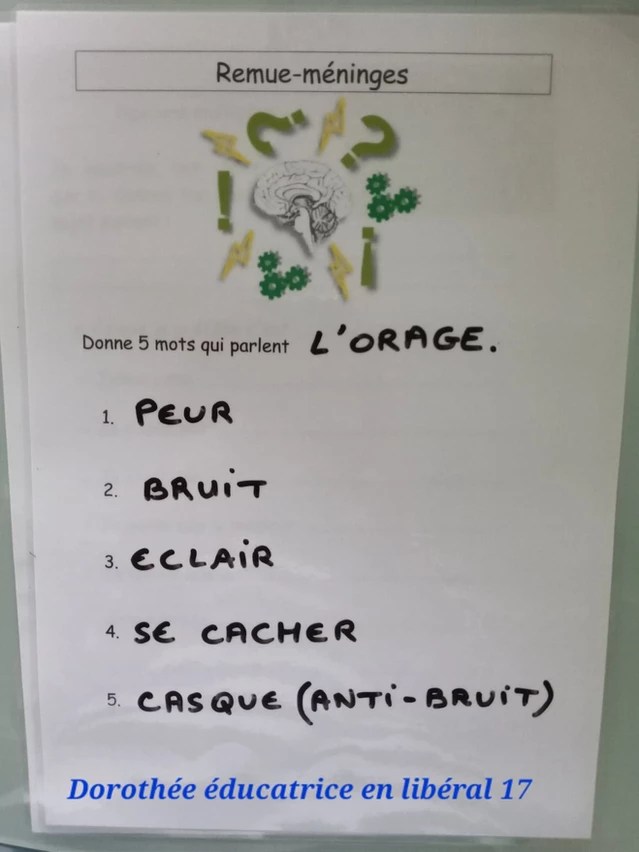 Remue-méninges
Donne 5 mots qui parlent L'ORAGE.
1. PEUR
2. BRUiT
3. ECLAiR
4. SE CACHER
5. CASQUE (ANTi-BRUiT)
Dorothée éducatrice en libéral 17